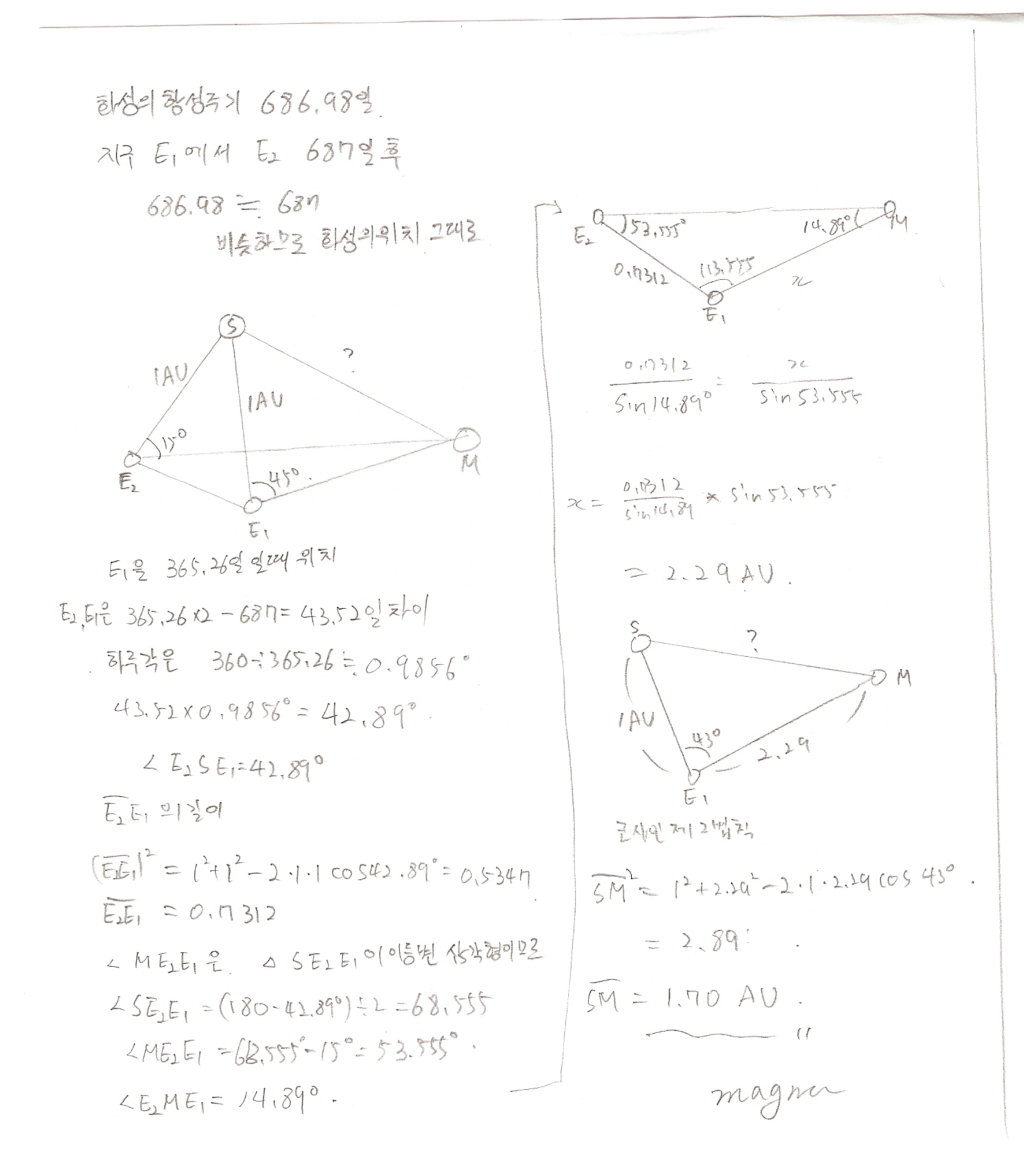 화성의 항성주기 686.98일.
지구 E₁에서 E₂ 687일 후
686.98 ≒ 687
비슷하므로 화성의 위치 그대로
S
1AU
?
1AU
15°
E₂
45°.
M
E₁
E₁을 365.26일 일때 위치
E₂,E₁은 365.26×2-687=43.52일 차이
하루각은 360÷365.26≒0.9856°
43.52×0.9856°=42.89°.
∠E₂SE₁=42.89°
E₂E₁의 길이
(E₂E₁)²=1²+1²-2·1·1cos42.89°=0.5347
E₂E₁=0.7312
∠ME₂E₁은 △SE₂E₁이 이등변 삼각형이므로
∠SE₂E₁=(180-42.89°)÷2=68.555
∠ME₂E₁=68.555°-15°=53.555°.
∠E₂ME₁=14.89°.
E₂ 53.555° 14.89° M
0.7312 113.555 x
E₁
0.7312/sin14.89° = x/sin53.555
x = 0.7312/sin14.89 * sin53.555
= 2.29AU.
S
?
M
1AU
43°
2.29
E₁
코사인 제2법칙
SM²=1²+2.29²-2·1·2.29cos43°.
= 2.89
SM=1.70 AU.
magner